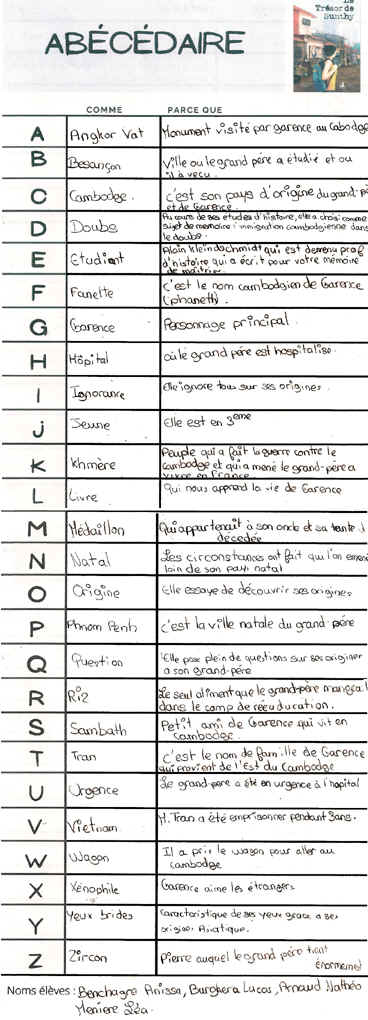 Le
Trésor de
Sunthy
ABÉCÉDAIRE
COMME PARCE QUE
A Angkor Vat Monument visité par garence au Cabodge
B Besançon Ville ou le grand père a étudié et ou
il a vecu.
C Cambodge. c'est son pays d'origine du grand-pè
et de Garence
D Doubs Au cours de ses etudes d'histoire, elle a choisi comme
sujet de memoire : immigration cambodgienne dans
le doubs.
E Etudiant Alain Kleindschmidt qui est devenu prof
d'histoire qui a écrit pour votre mémoire
de maitrise
F Fanette c'est le nom cambodgien de Garence
(phaneth).
G Garence Personnage principal.
H Hôpital où le grand père est hospitalisé.
I Ignorance Elle ignore tous sur ses origines.
J Jeune Elle est en 3ème
K Khmère Peuple qui a fait la guerre contre le
cambodge et qui a mené le grand-père a
vivre en France
L Livre Qui nous apprend la vie de Garence
M Médaillon Qui appartenait à son oncle et sa tante
décédée
N Natal Les circonstances ont fait qu'il on emené
loin de son pays natal
O Origine Elle essaye de découvrir ses origines
P Phnom Penh c'est la ville natale du grand-père
Q Question Elle pose plein de questions sur ses origines
a son grand-père
R Riz Le seul aliment que le grand-père mangeai
dans le camp de rééducation.
S Sambath Petit ami de Garence qui vit en
Cambodge.
T Tran c'est le nom de famille de Garence
qui provient de l'Est du Cambodge
U Urgence Le grand-pere a été en urgence à l'hopital
V Vietnam M. Tran a été emprisonner pendant 3ans.
W Wagon Il a pris le wagon pour aller au
cambodge
X Xénophile Garence aime les étrangers
Y Yeux brides Caractéristique de ses yeux grace a ses
origines Asiatique.
Z Zircon Pierre auquel le grand père tient
énormement
Noms élèves : Benchagre Anissa, Burghera Lucas, Arnaud Mathéo
Meniere Léa.